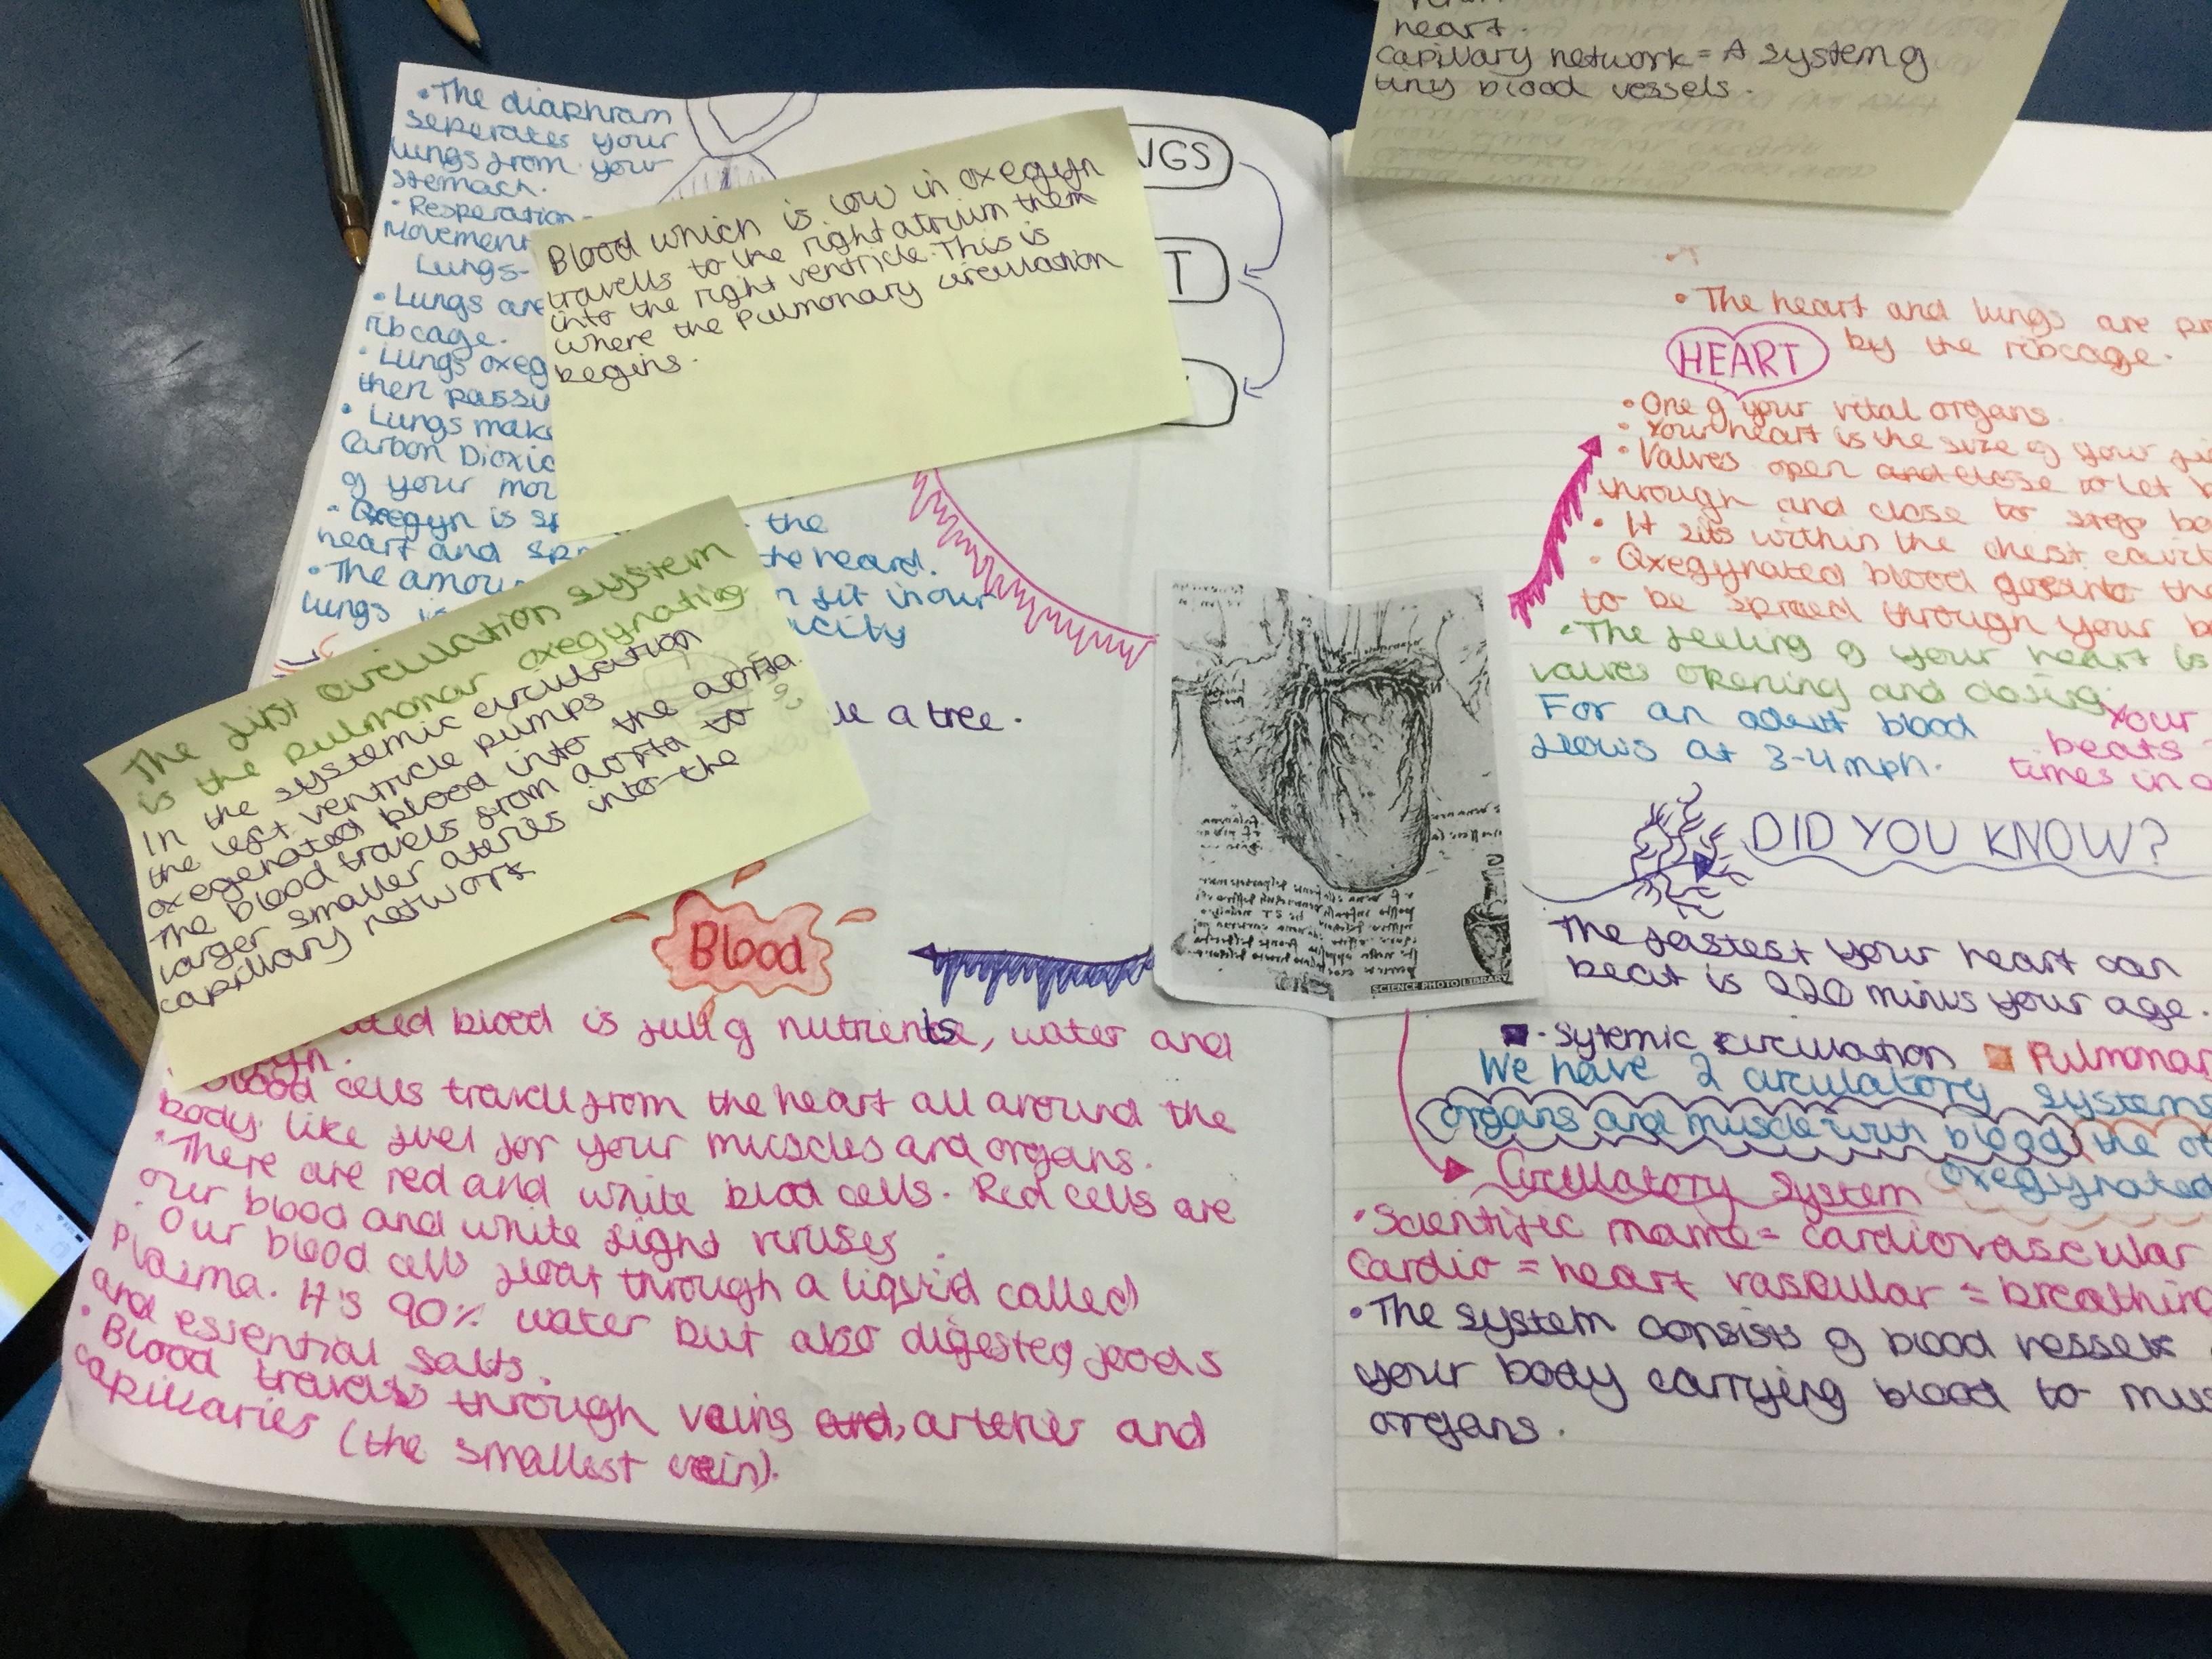 heart.
capillary network = A system of
tiny blood vessels.
• The diaphram
seperates your
lungs from your
stemach.
• Resperation -
Movement
Lungs -
• Lungs are
ribcage.
• Lungs oxeg
then passi
• Lungs make
Carbon Dioxid
of your mou
• Oxegyn is sp
the
heart and spr
the heard.
• The amou
n fit in our
lungs is
acity
NGS
T
Blood which is low in oxegyn
travells to the right atrium them
into the right ventricle. This is
where the Pulmonary circulation
begins.
The first circulation system
is the pulmonar oxegynating
In the systemic circulation
the left ventricle pumps
oxegenated blood into the aorta.
The blood travels from aorta to
larger smaller ateries into the
capillary network
ke a tree.
Blood
ated blood is full of nutrients, water and
gyn.
• Blood cells travell from the heart all around the
body like fuel for your muscles and organs.
• There are red and white blood cells. Red cells are
our blood and white fight viruses.
• Our blood cells float through a liquid called
Plasma. It's 90% water but also digested foods
and essential salts.
• Blood travels through veins and, arteries and
capillaries (the smallest vein).
SCIENCE PHOTO LIBRARY
• The heart and lungs are pr
by the ribcage.
HEART
• One of your vital organs.
• Your heart is the size of your fi
• Valves open and close to let b
through and close to stop
• It sits within the chest cavit
• Oxegynated blood goes into the
to be spread through your b
• The feeling of your heart is
valves opening and closing.
For an adult blood
flows at 3-4mph.
Your
beats
times in a
DID YOU KNOW?
The fastest your heart can
beat is 220 minus your age.
- Sytemic circulation
Pulmonar
We have 2 circulatory systems
organs and muscle with blood the o
oxegynated
Circulatory System
• Scientific name = cardiovascular
Cardio = heart vascular = breathing
• The system consists of blood vessels
your body carrying blood to mus
organs.